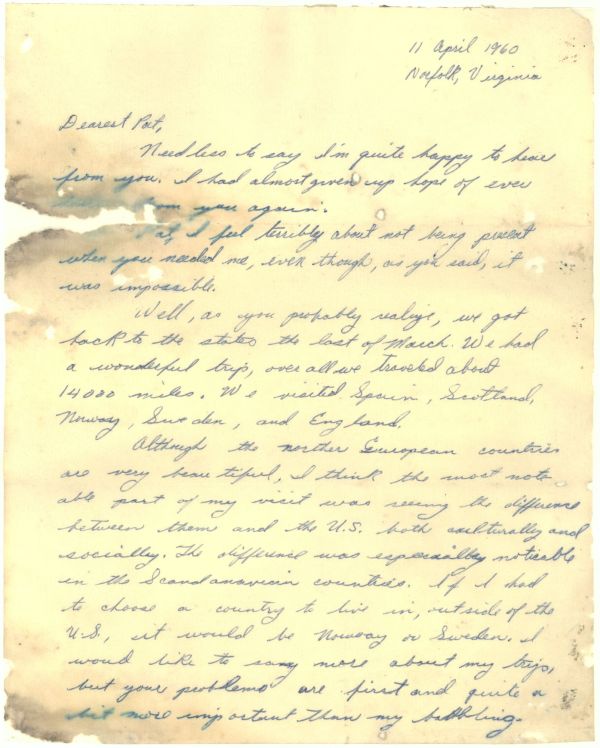 11 April 1960
Norfolk, Virginia
Dearest Pat,
Needless to say I'm quite happy to hear
from you. I had almost given up hope of ever
from you again.
Pat, I feel terribly about not being present
when you needed me, even though, as you said, it
was impossible.
Well, as you probably realize, we got
back to the states the last of March. We had
a wonderful trip, over all we traveled about
14000 miles. We visited Spain, Scotland,
Norway, Sweden, and England.
Although the norther European countries
are very beautiful, I think the most note
able part of my visit was seeing the difference
between them and the U.S. both culturally and
socially. The difference was especially noticable
in the Scandanavian countries. If I had
to choose a country to live in, outside of the
U.S., it would be Norway or Sweden. I
would like to say more about my trip,
but your problems are first and quite a
bit more important than my babbling.